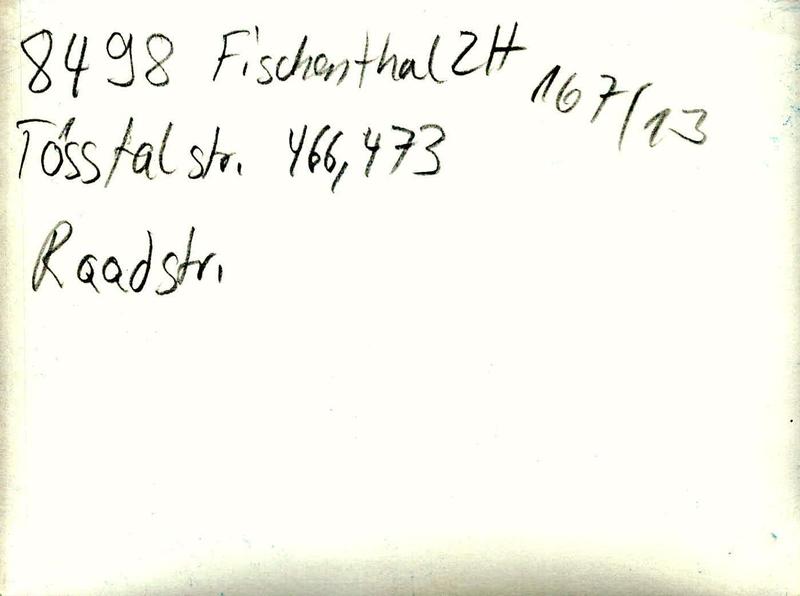 8498 Fischenthal ZH 167/13
Tösstalstr. 466, 473
Raadstr.